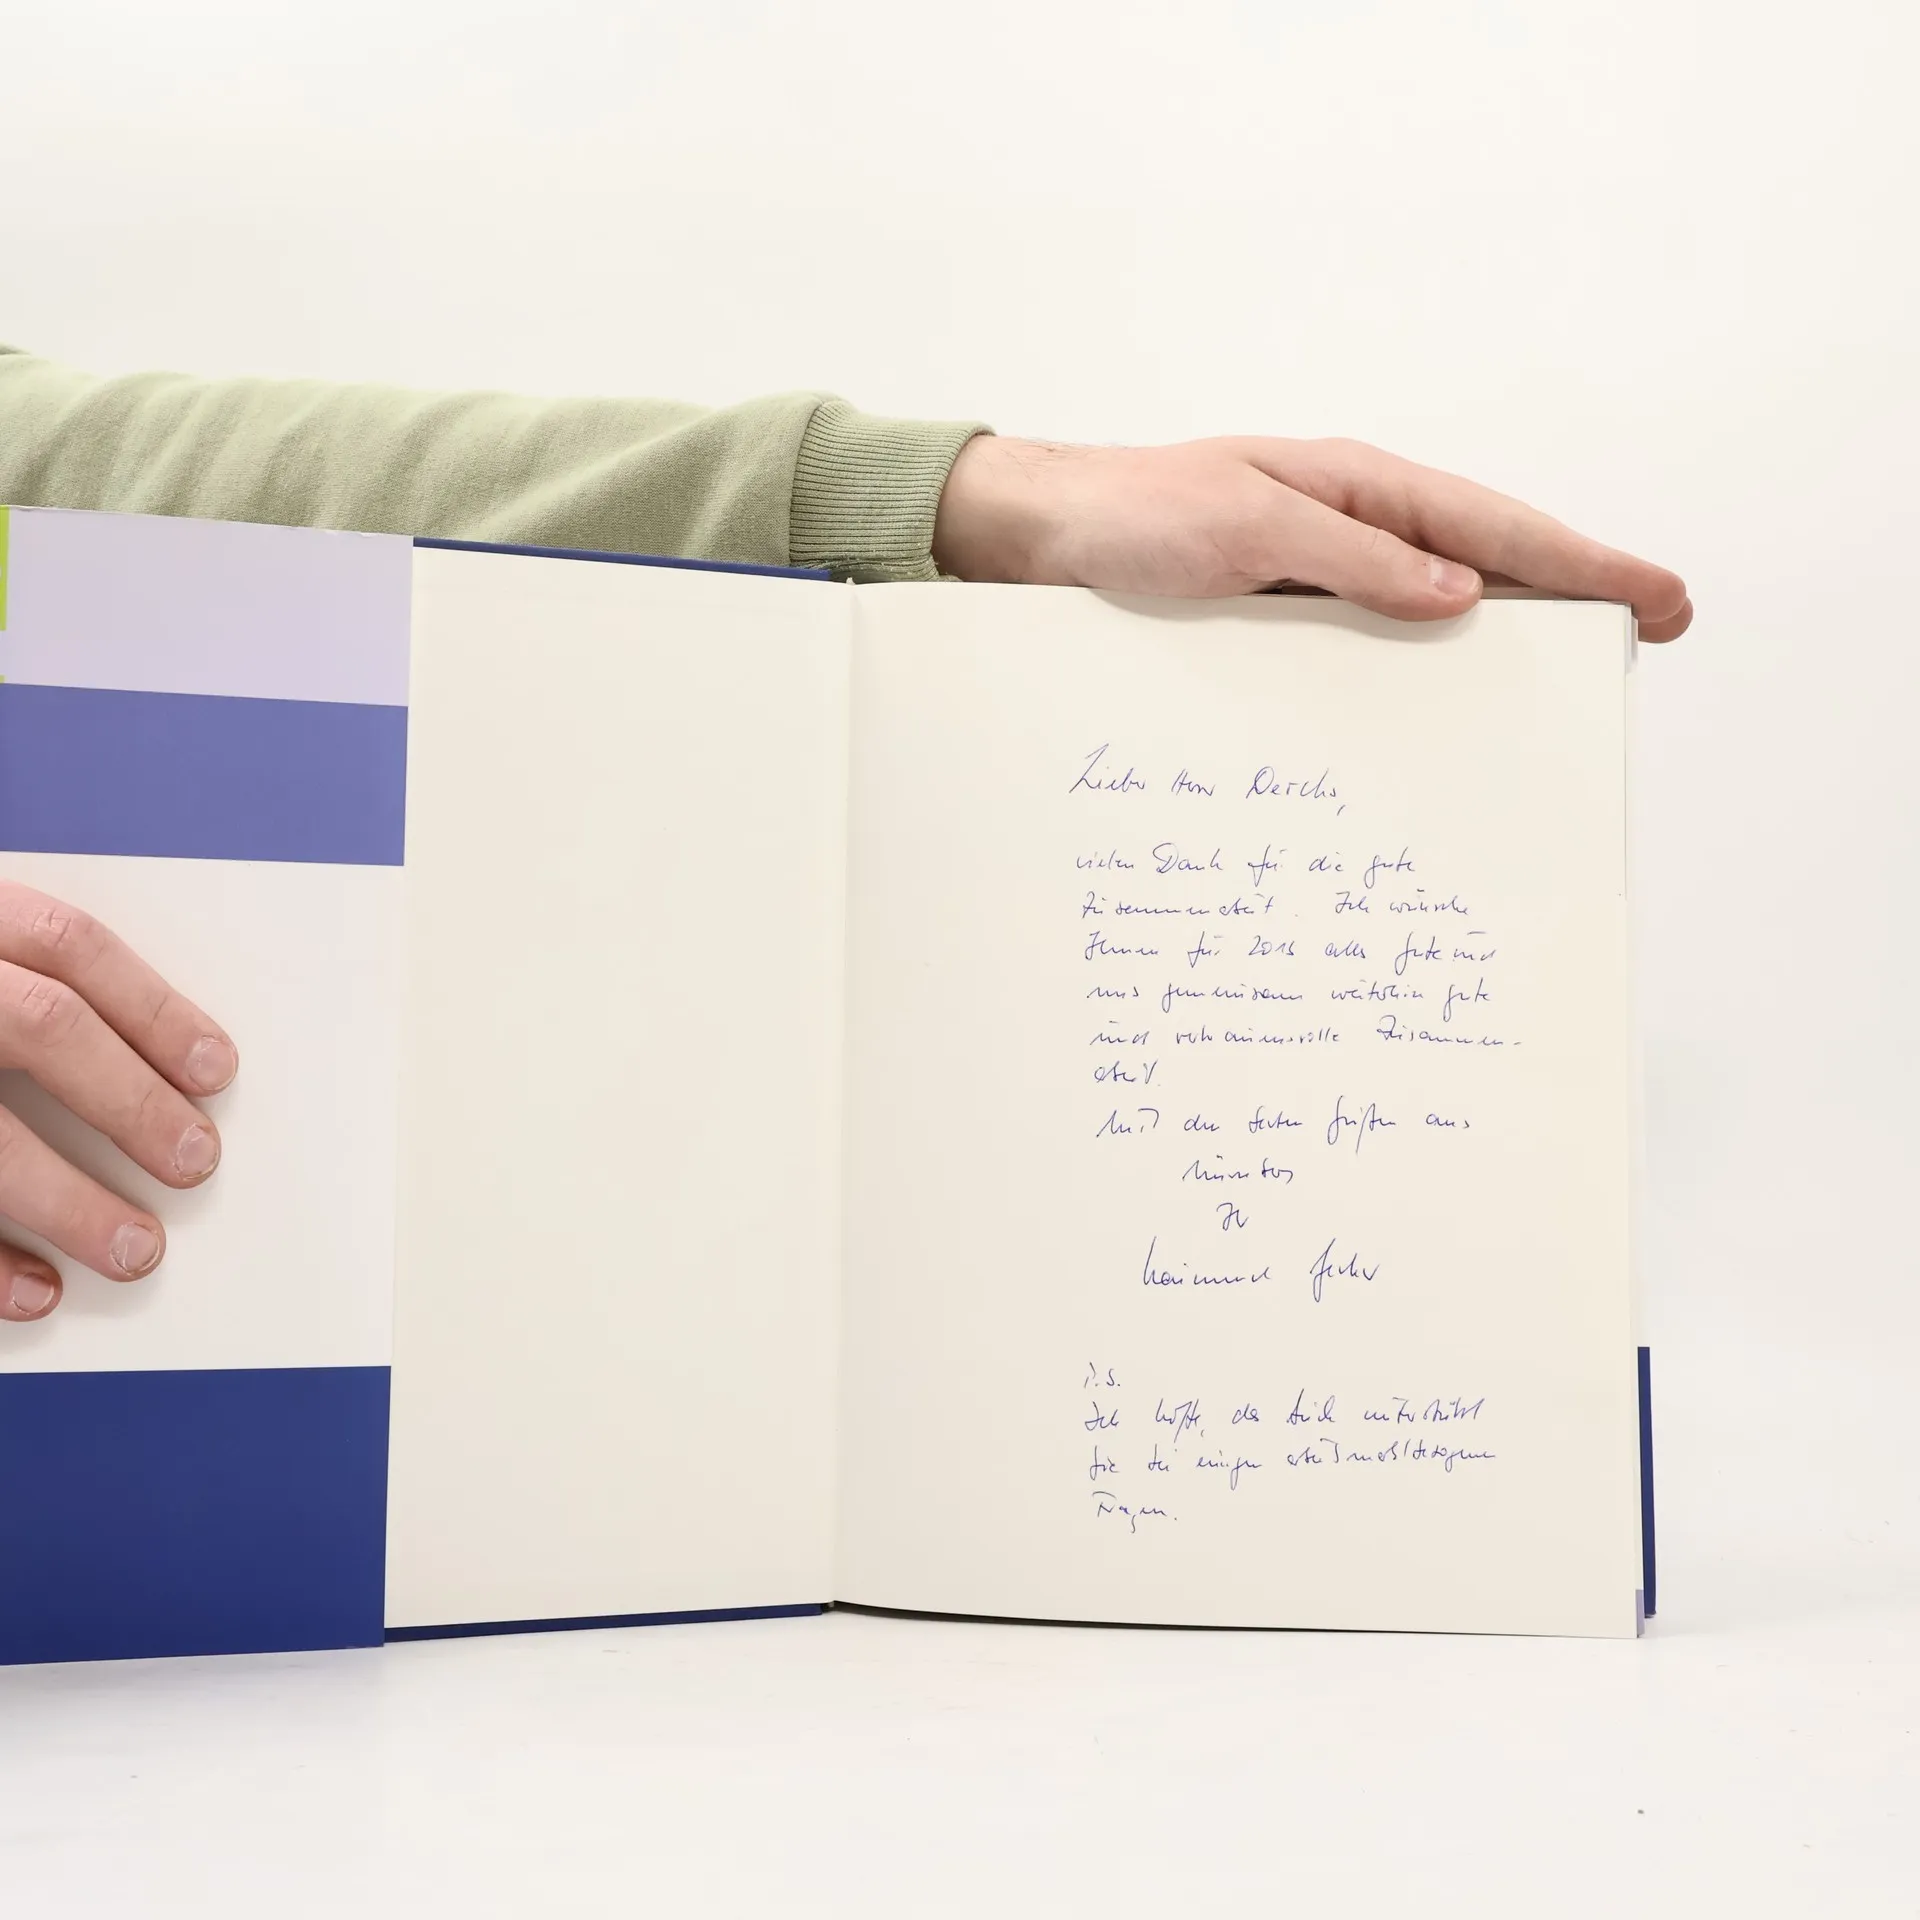 Lieber Herr Derichs,
vielen Dank für die gute
Zusammenarbeit. Ich wünsche
Ihnen für 2015 alles Gute und
uns gemeinsam weiterhin gute
und vertrauensvolle Zusammen-
arbeit.
Mit den besten Grüßen aus
Nürnberg
Ihr
Raimund
P.S.
Ich hoffe, das Buch unterstützt
Sie bei einigen arbeitsmarktbezogenen
Fragen.